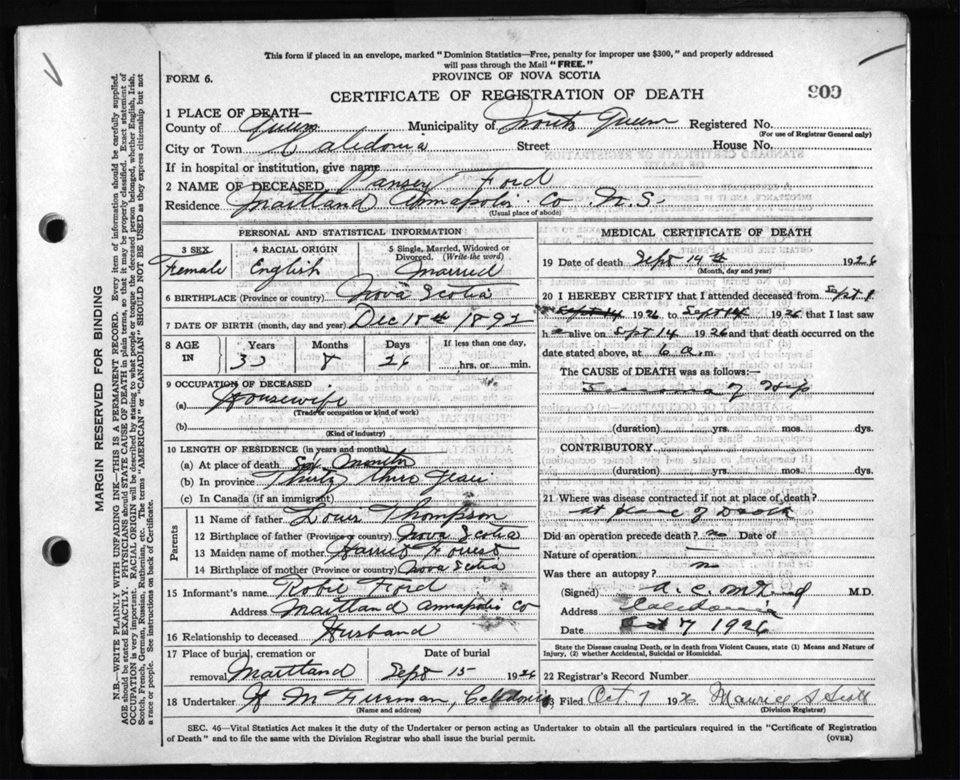 This form if placed in an envelope, marked "Dominion Statistics—Free, penalty for improper use $300," and properly addressed
will pass through the Mail "FREE."
FORM 6.
PROVINCE OF NOVA SCOTIA
CERTIFICATE OF REGISTRATION OF DEATH
1 PLACE OF DEATH—
County of Queens Municipality of North Queens Registered No.
(For use of Registrar General only)
City or Town Caledonia Street House No.
If in hospital or institution, give name
2 NAME OF DECEASED Pansey Ford
Residence Maitland Annapolis Co N.S.
(Usual place of abode)
PERSONAL AND STATISTICAL INFORMATION
3 SEX 4 RACIAL ORIGIN 5 Single, Married, Widowed or
Divorced. (Write the word)
Female English Married
6 BIRTHPLACE (Province or country) Nova Scotia
7 DATE OF BIRTH (month, day and year) Dec 18th 1892
8 AGE IN Years Months Days If less than one day,
33 8 26 hrs. or min.
9 OCCUPATION OF DECEASED
(a) Housewife
(Trade occupation or kind of work)
(b)
(Kind of industry)
10 LENGTH OF RESIDENCE (in years and months)
(a) At place of death Six Months
(b) In province Thirty three years
(c) In Canada (if an immigrant)
Parents
11 Name of father Louis Thompson
12 Birthplace of father (Province or country) Nova Scotia
13 Maiden name of mother Harriet
14 Birthplace of mother (Province or country) Nova Scotia
15 Informant's name Robie Ford
Address Maitland Annapolis Co
16 Relationship to deceased Husband
17 Place of burial, cremation or Date of burial
removal Maitland Sept 15 1926
18 Undertaker M Freeman, Caledonia
(Name and address)
MEDICAL CERTIFICATE OF DEATH
19 Date of death Sept 14th 1926
(Month, day and year)
20 I HEREBY CERTIFY that I attended deceased from Sept 1
1926 to Sept 14 1926 that I last saw
h alive on Sept 14 1926 and that death occurred on
date stated above, at 6 a.m.
The CAUSE of DEATH was as follows:—
of Hip
(duration) yrs. mos. dys.
CONTRIBUTORY
(duration) yrs. mos. dys.
21 Where was disease contracted if not at place of death?
at place of Death
Did an operation precede death? no Date of
Nature of operation
Was there an autopsy? no
(Signed) A. C. M.D.
Address Caledonia
Date Oct 7 1926
State the Disease Causing Death, or in death from Violent Causes, state (1) Means and Nature of
Injury, (2) whether Accidental, Suicidal or Homicidal.
22 Registrar's Record Number
23 Filed Oct. 7 192 Maurice S Scott
(Division Registrar)
SEC. 46—Vital Statistics Act makes it the duty of the Undertaker or person acting as Undertaker to obtain all the particulars required in the "Certificate of Registration
of Death" and to file the same with the Division Registrar who shall issue the burial permit. (OVER)
MARGIN RESERVED FOR BINDING
N.B.—WRITE PLAINLY WITH UNFADING INK—THIS IS A PERMANENT RECORD. Every item of information should be carefully supplied.
AGE should be stated EXACTLY. PHYSICIANS should STATE CAUSE OF DEATH in plain terms, so that it may be properly classified. Exact statement of
OCCUPATION is very important. RACIAL ORIGIN will be described by stating to what people or tongue the deceased person belonged, whether English, Irish,
Scotch, French, German, Russian, Ruthenian, etc. The terms "AMERICAN" or "CANADIAN" SHOULD NOT BE USED as they express citizenship but not
a race or people. See instructions on back of Certificate.